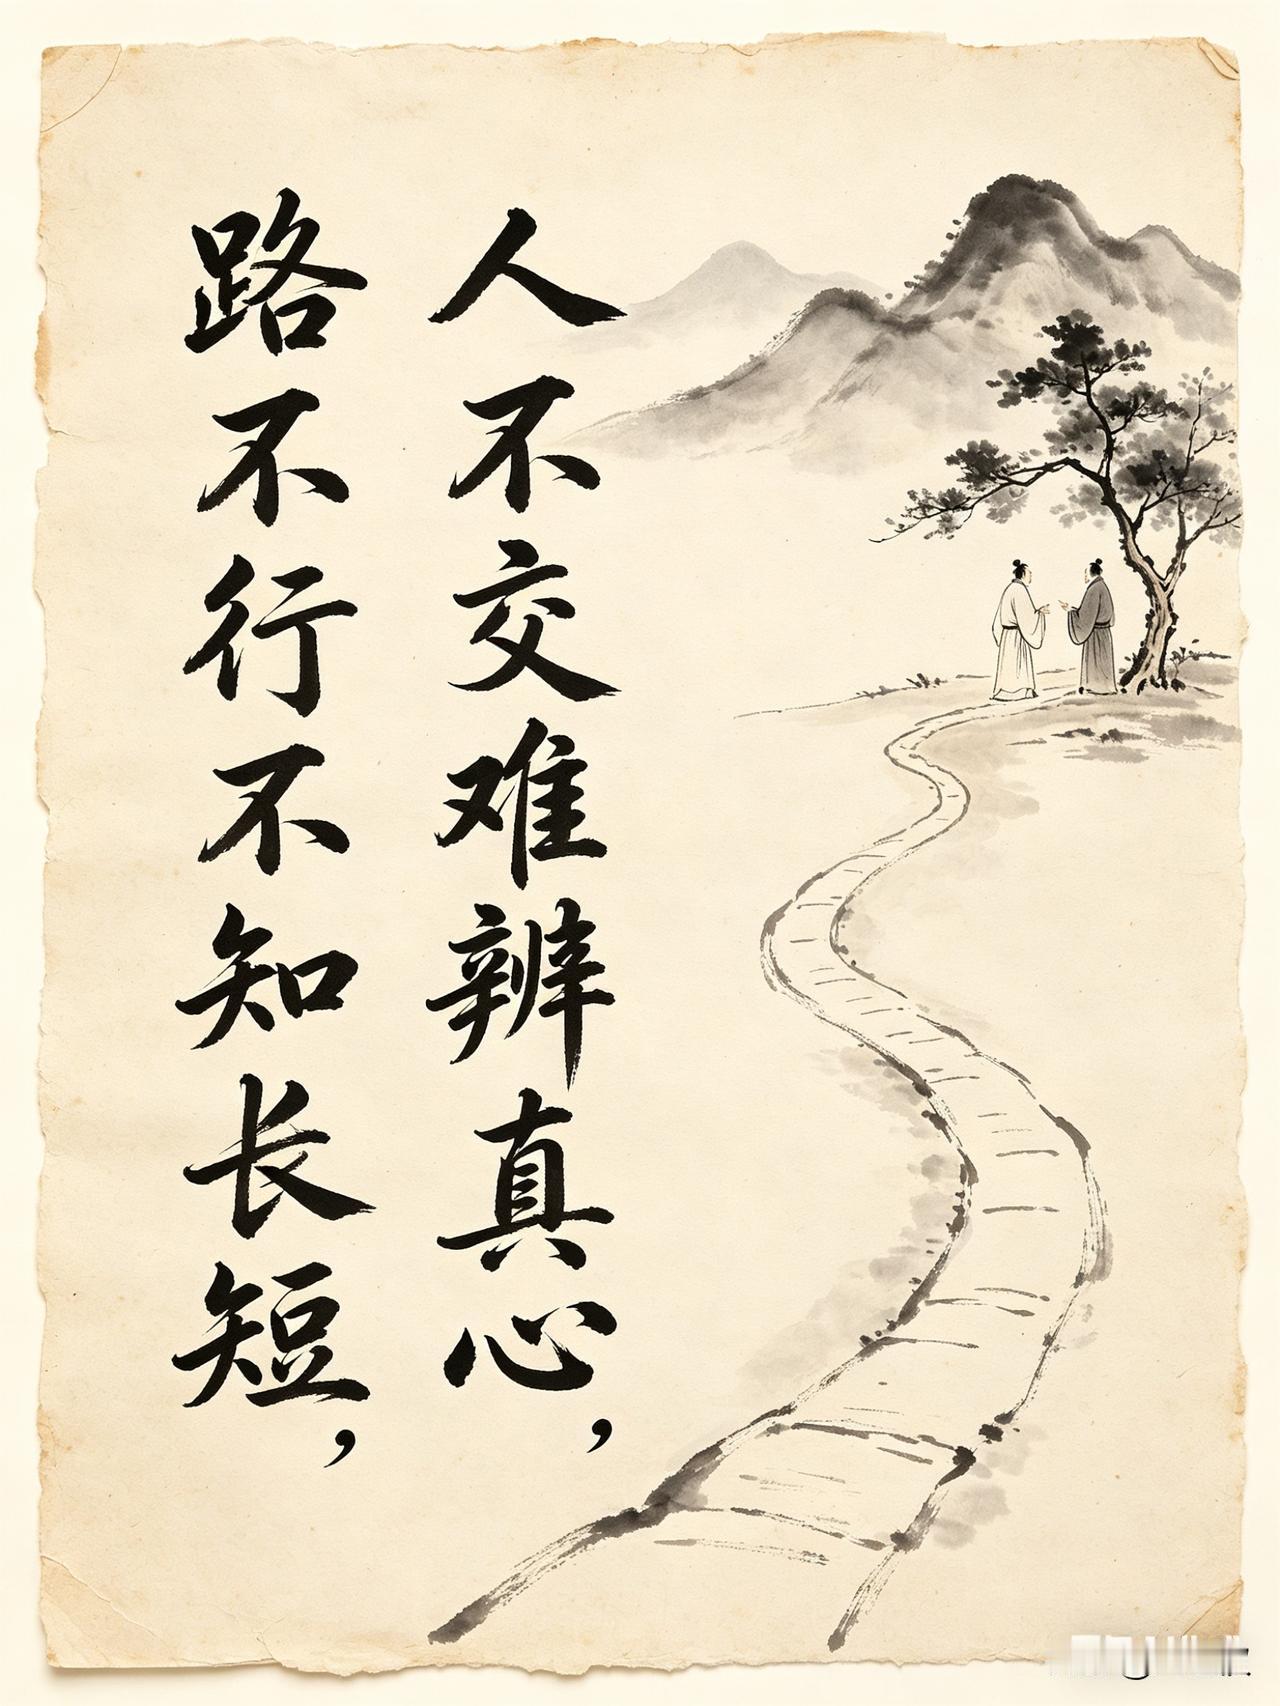 人不交难辨真心，
路不行不知长短，